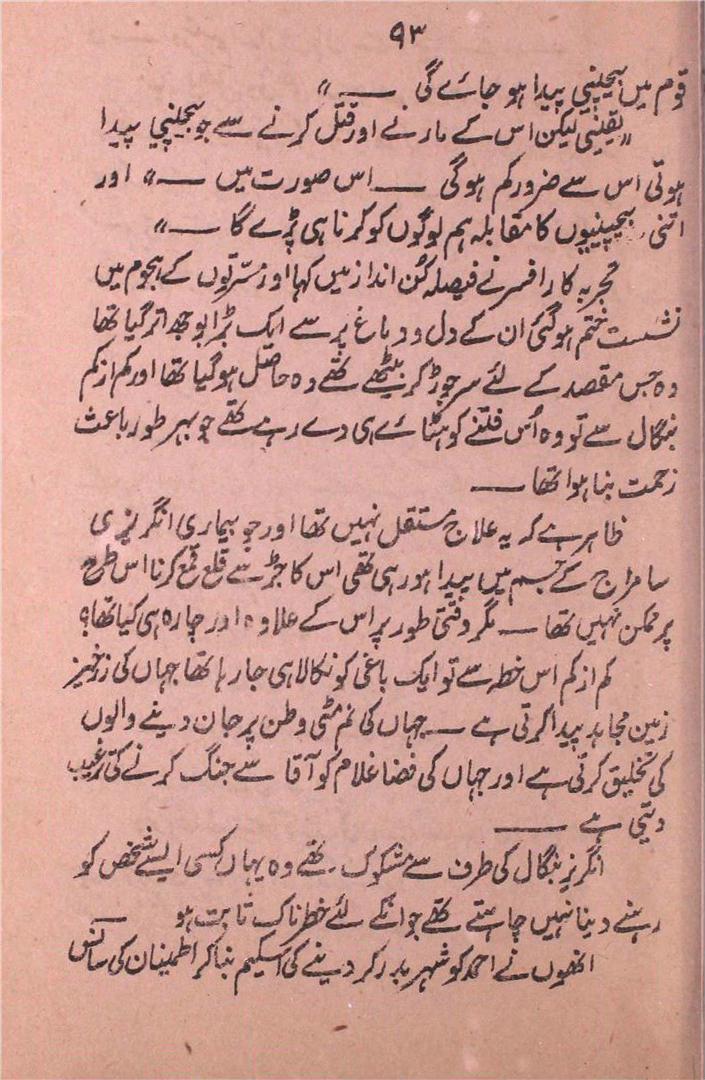 ۹۳
قوم میں بیچینی پیدا ہو جائے گی ـــــ "
"یقینی لیکن اس کے مارنے اور قتل کرنے سے جو بیچینیا پیدا
ہوتی اس سے ضرور کم ہوگی ـــــ اس صورت میں ـــــ" اور
اتنی بیچینیوں کا مقابلہ ہم لوگوں کو کرنا ہی پڑے گا ـــــ"
تجربہ کار افسر نے فیصلہ کن انداز میں کہا اور مسرتوں کے ہجوم میں
نشست ختم ہو گئی ان کے دل و دماغ پر سے ایک بڑا بوجھ اتر گیا تھا
وہ جس مقصد کے لئے سر جوڑ کر بیٹھے تھے وہ حاصل ہو گیا تھا اور کم از کم
بنگال سے تو وہ اُس فتنے کو ہٹائے ہی دے رہے تھے جو بہر طور باعث
زحمت بنا ہوا تھا ـــــ
ظاہر ہے کہ یہ علاج مستقل نہیں تھا اور جو بیماری انگریزی
سامراج کے جسم میں پیدا ہو رہی تھی اس کا جڑ سے قلع قمع کرنا اس طرح
پر ممکن نہیں تھا ـــــ مگر وقتی طور پر اس کے علاوہ اور چارہ ہی کیا تھا؟
کم از کم اس خطہ سے تو ایک باغی کو نکالا ہی جا رہا تھا جہاں کی زرخیز
زمین مجاہد پیدا کرتی ہے ـــــ جہاں کی نم مٹی وطن پر جان دینے والوں
کی تخلیق کرتی ہے اور جہاں کی فضا غلام کو آقا سے جنگ کرنے کی ترغیب
دیتی ہے ـــــ
انگریز بنگال کی طرف سے مشکوک تھے وہ یہاں کسی ایسے شخص کو
رہنے دینا نہیں چاہتے تھے جو انکے لئے خطرناک ثابت ہو ـــــ
انھوں نے احمد کو شہر بدر کر دینے کی اسکیم بنا کر اطمینان کی سانس